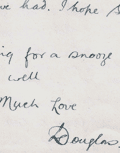 we had. I hope s
ng for a snooze
well
Much Love
Douglas.